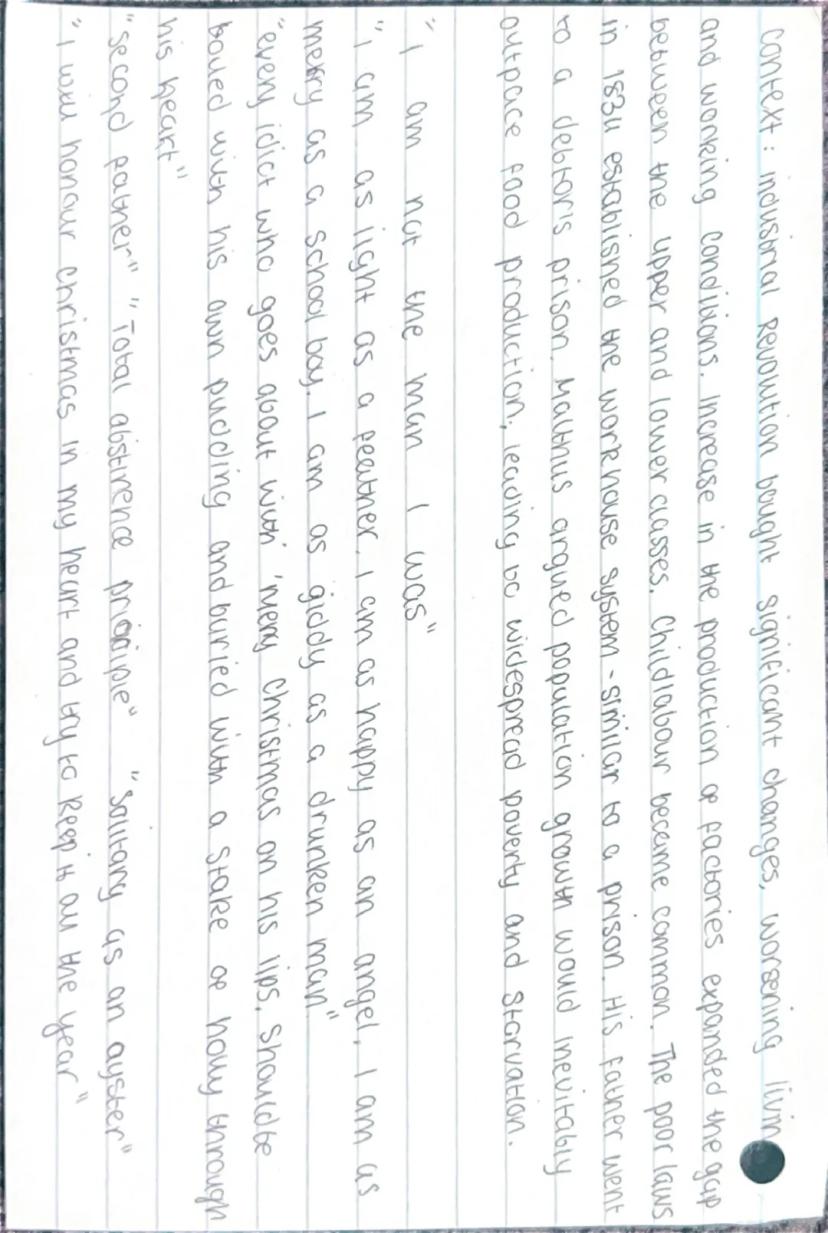 Context: industrial Revolution bought significant changes, worsening livin
and working conditions. Increase in the production of factories expanded the gap
between the upper and lower classes. Childlabour became common. The poor laws
in 1834 established the workhouse system - similar to a prison. His father went
to a debtor's prison. Malthus argued population growth would inevitably
outpace food production, leading to widespread poverty and starvation.
"I am not the man I was"
"I am as light as a feather, I am as happy as an angel, I am as
merry as a school boy. I am as giddy as a drunken man"
"every idiot who goes about with 'merry Christmas on his lips, should be
boiled with his own pudding and buried with a stake of holly through
his heart"
"second father" "Total abstinence principle" "Solitary as an oyster"
"I will honour christmas in my heart and try to keep it all the year"